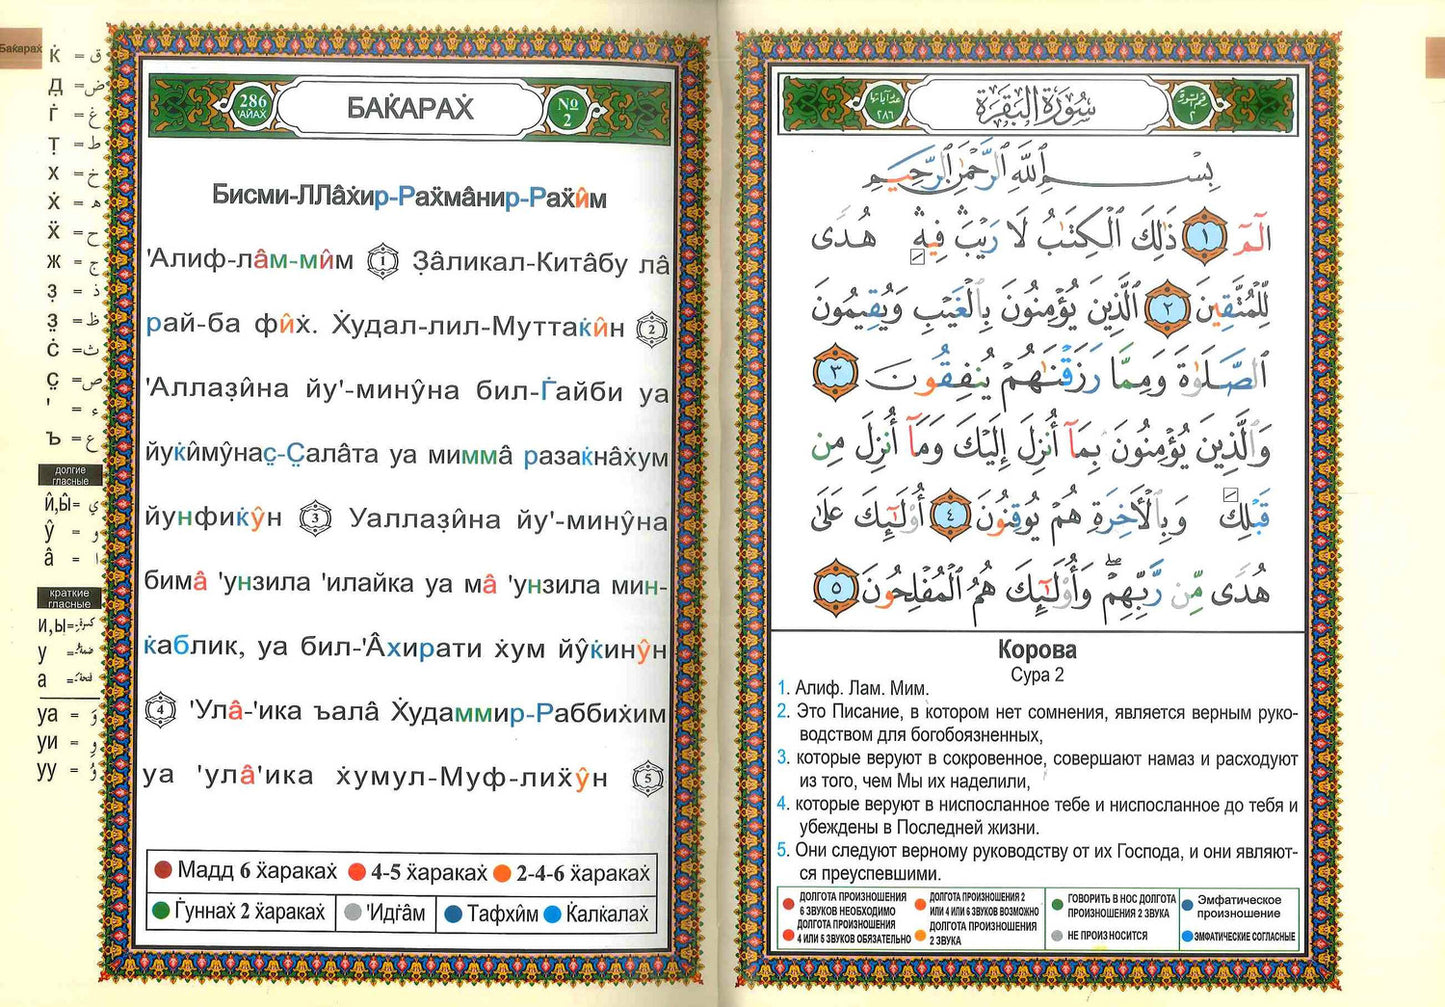 Баќарах
Ќ = ق
Д = ض
Ѓ = غ
Ṭ = ط
Х = خ
Х̇ = ه
Ӽ = ح
Ж = ج
З̣ = ذ
З̤ = ظ
Ċ = ث
С̤ = ص
' = ء
Ъ = ع
долгие
гласные
Й,Ы̂= ي
ŷ = و
â = ا
краткие
гласные
И,Ы=
у =
а =
уа = وَ
уи = وِ
уу = وُ
286
'АЙАХ̇
БАЌАРАХ̇
№
2
Бисми-ЛЛâх̇ир-Рах̈мâнир-Рах̈и̂м
'Алиф-лâм-ми̂м 1 З̣âликал-Китâбу лâ
рай-ба фи̂х̇. Х̇удал-лил-Муттаќи̂н 2
'Аллаз̣и̂на йу'-минŷна бил-Ѓайби уа
йуќи̂мŷнас̤-С̤алâта уа миммâ разаќнâх̇ум
йунфиќŷн 3 Уаллаз̣и̂на йу'-минŷна
бимâ 'унзила 'илайка уа мâ 'унзила мин-
ќаблик, уа бил-'Âхирати х̇ум йŷќинŷн
4 'Улâ-'ика ъалâ Х̇удаммир-Раббих̇им
уа 'улâ'ика х̇умул-Муф-лих̈ŷн 5
Мадд 6 х̈араках̇ 4-5 х̈араках̇ 2-4-6 х̈араках̇
Ѓуннах̇ 2 х̈араках̇ 'Идѓâм Тафхи̂м Ќалќалах̇
رقم السورة
٢
سُورَةُ البَقَرَةِ
عدد آياتها
٢٨٦
بِسْمِ ٱللَّهِ ٱلرَّحْمَٰنِ ٱلرَّحِيمِ
الٓمٓ ١ ذَٰلِكَ ٱلْكِتَٰبُ لَا رَيْبَ فِيهِ هُدًى
لِّلْمُتَّقِينَ ٢ ٱلَّذِينَ يُؤْمِنُونَ بِٱلْغَيْبِ وَيُقِيمُونَ
ٱلصَّلَوٰةَ وَمِمَّا رَزَقْنَٰهُمْ يُنفِقُونَ ٣
وَٱلَّذِينَ يُؤْمِنُونَ بِمَآ أُنزِلَ إِلَيْكَ وَمَآ أُنزِلَ مِن
قَبْلِكَ وَبِٱلْأَخِرَةِ هُمْ يُوقِنُونَ ٤ أُوْلَٰٓئِكَ عَلَىٰ
هُدًى مِّن رَّبِّهِمْ ۖ وَأُوْلَٰٓئِكَ هُمُ ٱلْمُفْلِحُونَ ٥
Корова
Сура 2
1. Алиф. Лам. Мим.
2. Это Писание, в котором нет сомнения, является верным руко-
водством для богобоязненных,
3. которые веруют в сокровенное, совершают намаз и расходуют
из того, чем Мы их наделили,
4. которые веруют в ниспосланное тебе и ниспосланное до тебя и
убеждены в Последней жизни.
5. Они следуют верному руководству от их Господа, и они являют-
ся преуспевшими.
ДОЛГОТА ПРОИЗНОШЕНИЯ
6 ЗВУКОВ НЕОБХОДИМО
ДОЛГОТА ПРОИЗНОШЕНИЯ
4 ИЛИ 5 ЗВУКОВ ОБЯЗАТЕЛЬНО
ДОЛГОТА ПРОИЗНОШЕНИЯ 2
ИЛИ 4 ИЛИ 6 ЗВУКОВ ВОЗМОЖНО
ДОЛГОТА ПРОИЗНОШЕНИЯ
2 ЗВУКА
ГОВОРИТЬ В НОС ДОЛГОТА
ПРОИЗНОШЕНИЯ 2 ЗВУКА
НЕ ПРОИЗНОСИТСЯ
Эмфатическое
произношение
ЭМФАТИЧЕСКИЕ СОГЛАСНЫЕ